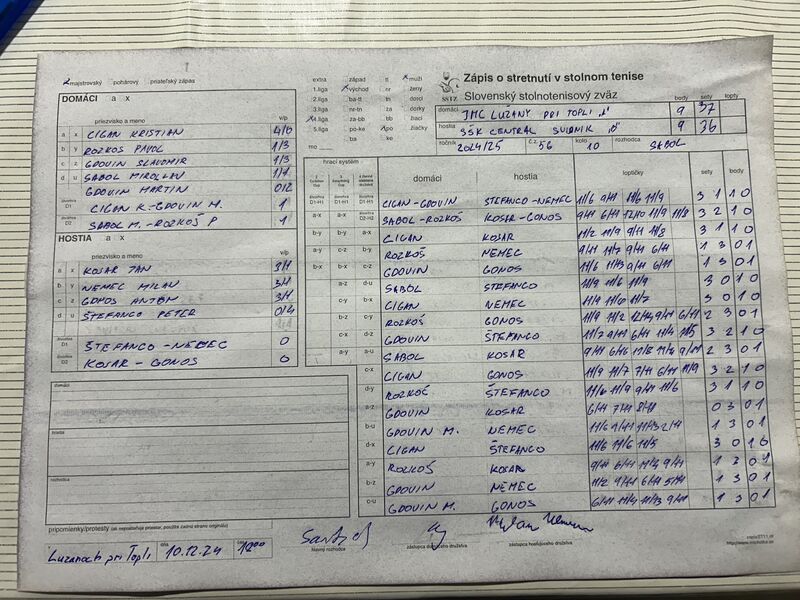 x majstrovský pohárový priateľský zápas
DOMÁCI a x
priezvisko a meno v/p
a x CIGAN KRISTIAN 4/0
b y ROZKOŠ PAVOL 1/3
c z GDOVIN SLAVOMIR 1/3
d u SABOL MIROSLAV 1/1
GDOVIN MARTIN 0/2
štvorhra D1 CIGAN K.-GDOVIN M. 1
štvorhra D2 SABOL M.-ROZKOŠ P 1
HOSTIA a x
priezvisko a meno v/p
a x KOSAR JAN 3/1
b y NEMEC MILAN 3/1
c z GONOS ANTON 3/1
d u ŠTEFANCO PETER 0/4
štvorhra D1 ŠTEFANCO-NEMEC 0
štvorhra D2 KOSAR-GONOS 0
domáci
hostia
rozhodca
pripomienky/protesty (ak nepostačuje priestor, použite zadnú stranu originálu)
extra západ tt x muži
1.liga x východ nr ženy
2.liga ba-tt tn dorci
3.liga nr-tn za dorky
4.liga za-bb bb žiaci
x 5.liga po-ke x po žiačky
mo
SSTZ
Zápis o stretnutí v stolnom tenise
Slovenský stolnotenisový zväz
body sety lopty
domáci JMC LUŽANY PRI TOPLI "A" 9 37
hostia SŠK CENTRAL SVIDNIK "B" 9 36
ročník 2024/25 č.z. 56 kolo 10 rozhodca SABOL
hrací systém domáci hostia loptičky sety body
D1-H1 CIGAN-GDOVIN ŠTEFANCO-NEMEC 11/6 9/11 11/6 11/9 3 1 1 0
D2-H2 SABOL-ROZKOŠ KOSAR-GONOS 9/11 6/11 12/10 11/9 11/8 3 2 1 0
b-y CIGAN KOSAR 11/2 11/9 9/11 11/8 3 1 1 0
ROZKOŠ NEMEC 9/11 11/7 9/11 6/11 1 3 0 1
GDOVIN GONOS 11/6 11/13 9/11 6/11 1 3 0 1
d-u SABOL ŠTEFANCO 11/9 11/6 11/9 3 0 1 0
c-y CIGAN NEMEC 11/9 11/6 11/7 3 0 1 0
b-z ROZKOŠ GONOS 2 3 0 1
c-x d-z GDOVIN ŠTEFANCO 11/7 9/11 6/11 3 2 1 0
a-y a-u SABOL KOSAR 2 3 0 1
c-x CIGAN GONOS 11/9 11/7 7/11 6/11 11/9 3 2 1 0
d-y ROZKOŠ ŠTEFANCO 11/6 11/9 9/11 11/6 3 1 1 0
a-z GDOVIN KOSAR 6/11 7/11 8/11 0 3 0 1
b-u GDOVIN M. NEMEC 11/6 9/11 11/13 2/11 1 3 0 1
d-x CIGAN ŠTEFANCO 11/6 11/6 11/5 3 0 1 0
a-y ROZKOŠ KOSAR 1 3 0 1
b-z GDOVIN NEMEC 11/2 9/11 6/11 5/11 1 3 0 1
c-u GDOVIN M. GONOS 1 3 0 1
Lužanoch pri Topli dňa 10.12.24
hlavný rozhodca zástupca domáceho družstva zástupca hosťujúceho družstva